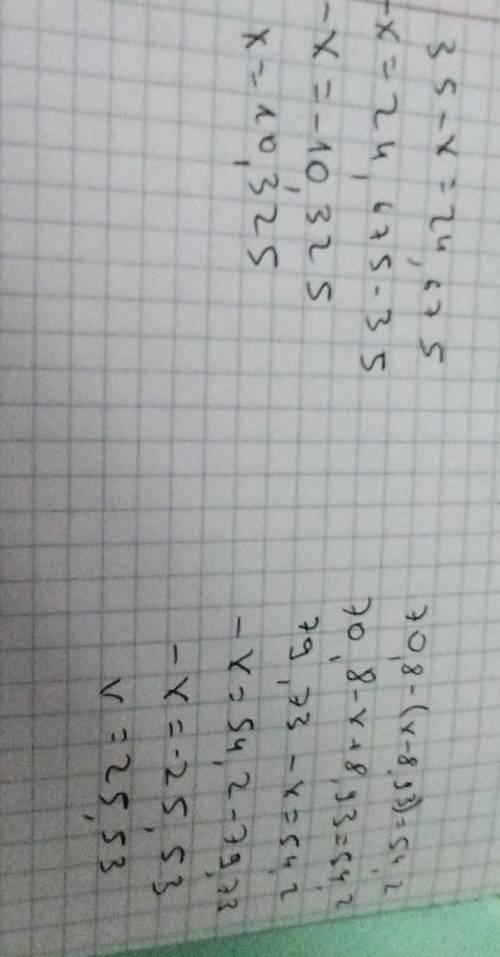 35-x=24,675
-x=24,675-35
-x=-10,325
x=10,325
70,8-(x-8,93)=54,2
70,8-x+8,93=54,2
79,73-x=54,2
-x=54,2-79,73
-x=-25,53
x=25,53